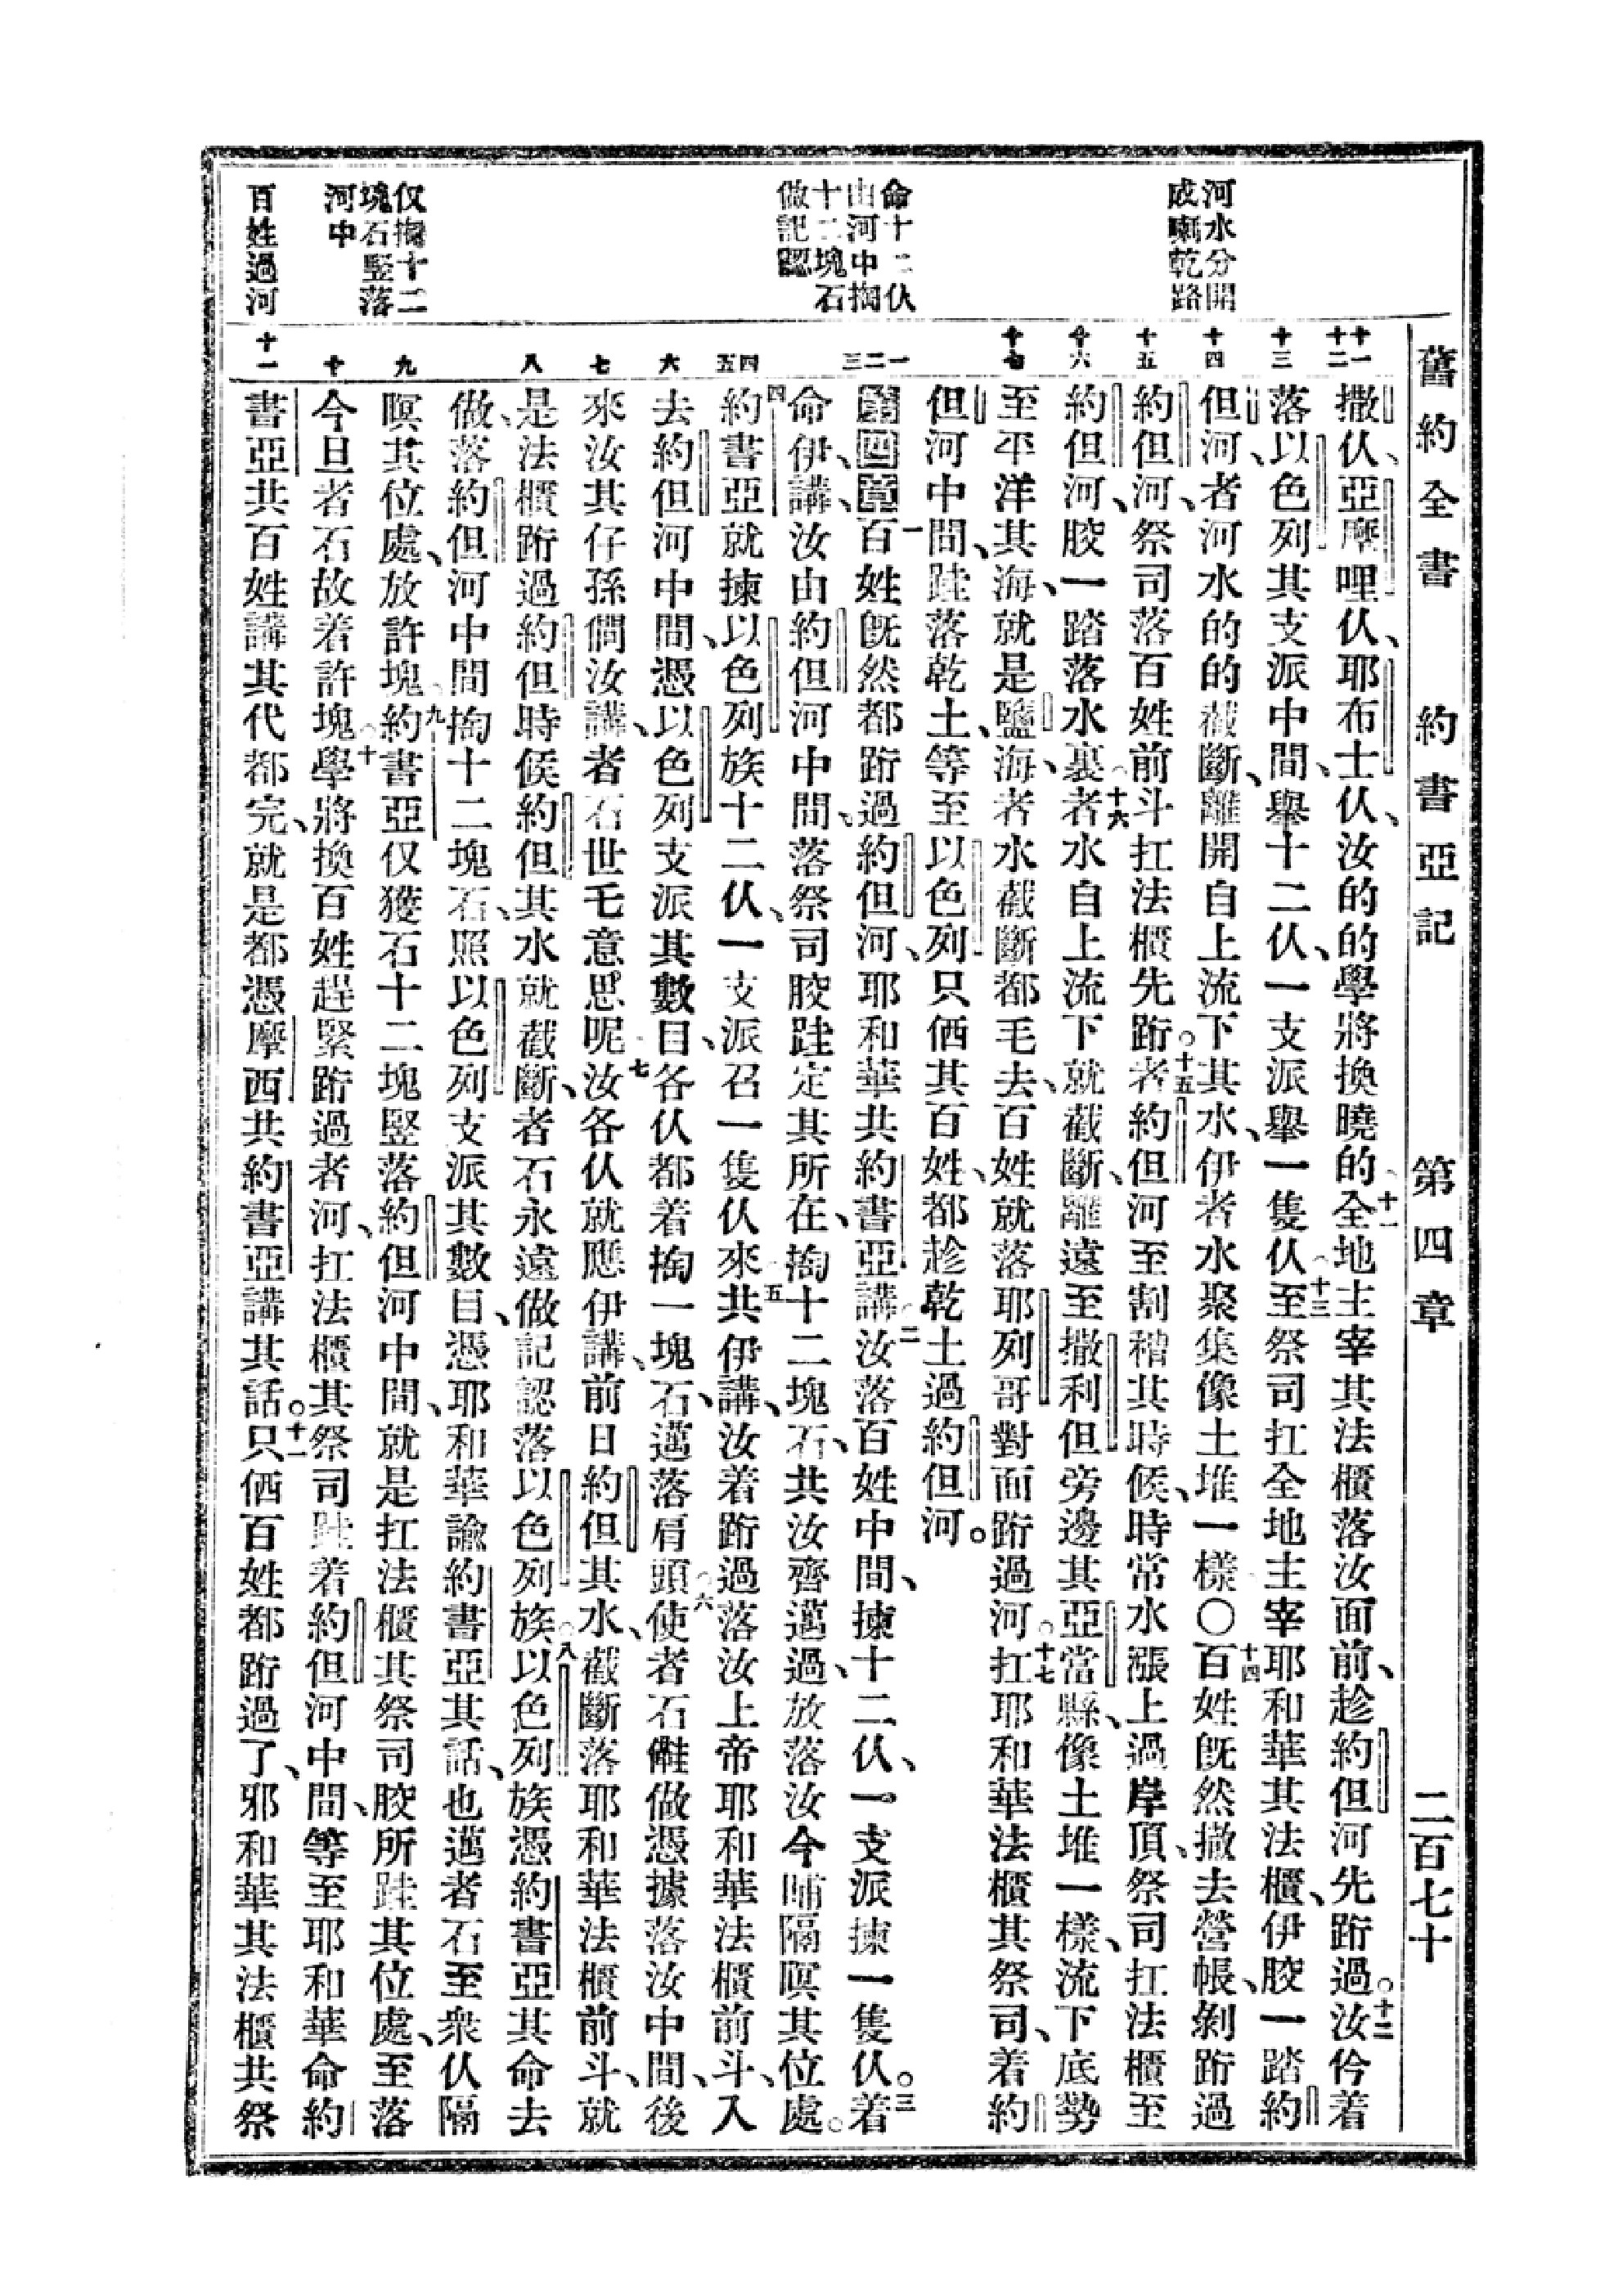 舊約全書 約書亞記 第四章 二百七十
河水分開
成嚹乾路
命十二仈
由河中掏
十二塊石
做記認
仅掏十二
塊石竪落
河中
百姓過河
撒仈、亞摩哩仈、耶布士仈、汝的的學將換曉的、十一全地主宰其法櫃落汝面前、趁約但河先跴過。十二汝仱着
落以色列其支派中間、舉十二仈、一支派舉一隻仈、十三至祭司扛全地主宰耶和華其法櫃、伊骹一踏約
但河、者河水的的截斷、離開自上流下其水、伊者水聚集像土堆一樣○十四百姓旣然撤去營帳、剝跴過
約但河、祭司落百姓前斗扛法櫃先跴。十五者約但河至割稽其時候、時常水漲上過岸頂、祭司扛法櫃至
約但河、骹一踏落水裏、十六者水自上流下就截斷、離遠至撒利但旁邊其亞當縣、像土堆一樣、流下底勢
至平洋其海、就是鹽海、者水截斷都毛去、百姓就落耶列哥對面跴過河、十七扛耶和華法櫃其祭司、着約
但河中間、跬落乾土、等至以色列只仾其百姓、都趁乾土過約但河。
第四章 一百姓旣然都跴過約但河、耶和華共約書亞講、二汝落百姓中間、揀十二仈、一支派揀一隻仈。三着
命伊講、汝由約但河中間、落祭司骹跬定其所在、掏十二塊石、共汝齊邁過、放落汝今晡隔暝其位處。
四約書亞就揀以色列族十二仈、一支派召一隻仈來、五共伊講、汝着跴過落汝上帝耶和華法櫃前斗、入
去約但河中間、憑以色列支派其數目、各仈都着掏一塊石、邁落肩頭、六使者石㒗做憑據落汝中間、後
來汝其仔孫倜汝講、者石世毛意思呢、七汝各仈就應伊講、前日約但其水、截斷落耶和華法櫃前斗、就
是法櫃跴過約但時候、約但其水就截斷、者石永遠做記認落以色列族、八以色列族憑約書亞其命去
做、落約但河中間掏十二塊石、照以色列支派其數目、憑耶和華諭約書亞其話、也邁者石至衆仈隔
暝其位處、放許塊、九約書亞仅獲石十二塊竪落約但河中間、就是扛法櫃其祭司骹所跬其位處、至落
今旦者石故着許塊、十學將換百姓趕緊跴過者河、扛法櫃其祭司跬着約但河中間、等至耶和華命約
書亞共百姓講其代都完、就是都憑摩西共約書亞講其話。十一只仾百姓都跴過了、耶和華其法櫃共祭